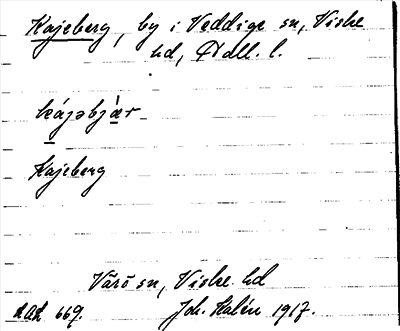 Kajeberg, by i Veddige sn, Viske
hd, Hall. l.
kájəbjàr
Kajeberg
Värö sn, Viske hd
669. Joh. Kalén 1917.